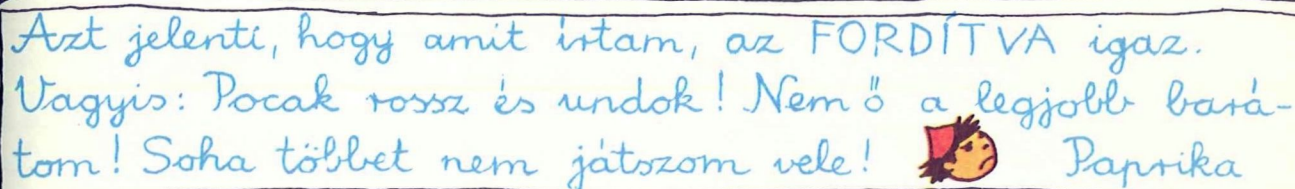 Azt jelenti, hogy amit írtam, az FORDÍTVA igaz.
Vagyis: Pocak rossz és undok! Nem ő a legjobb bará-
tom! Soha többet nem játszom vele! Paprika